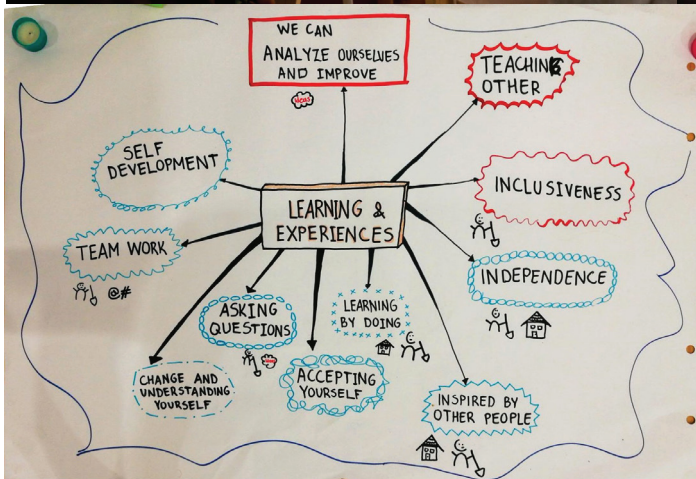 WE CAN
ANALYZE OURSELVES
AND IMPROVE
TEACHING
OTHER
SELF
DEVELOPMENT
INCLUSIVENESS
LEARNING &
EXPERIENCES
TEAM WORK
@#
INDEPENDENCE
ASKING
QUESTIONS
LEARNING
BY DOING
CHANGE AND
UNDERSTANDING
YOURSELF
ACCEPTING
YOURSELF
INSPIRED BY
OTHER PEOPLE